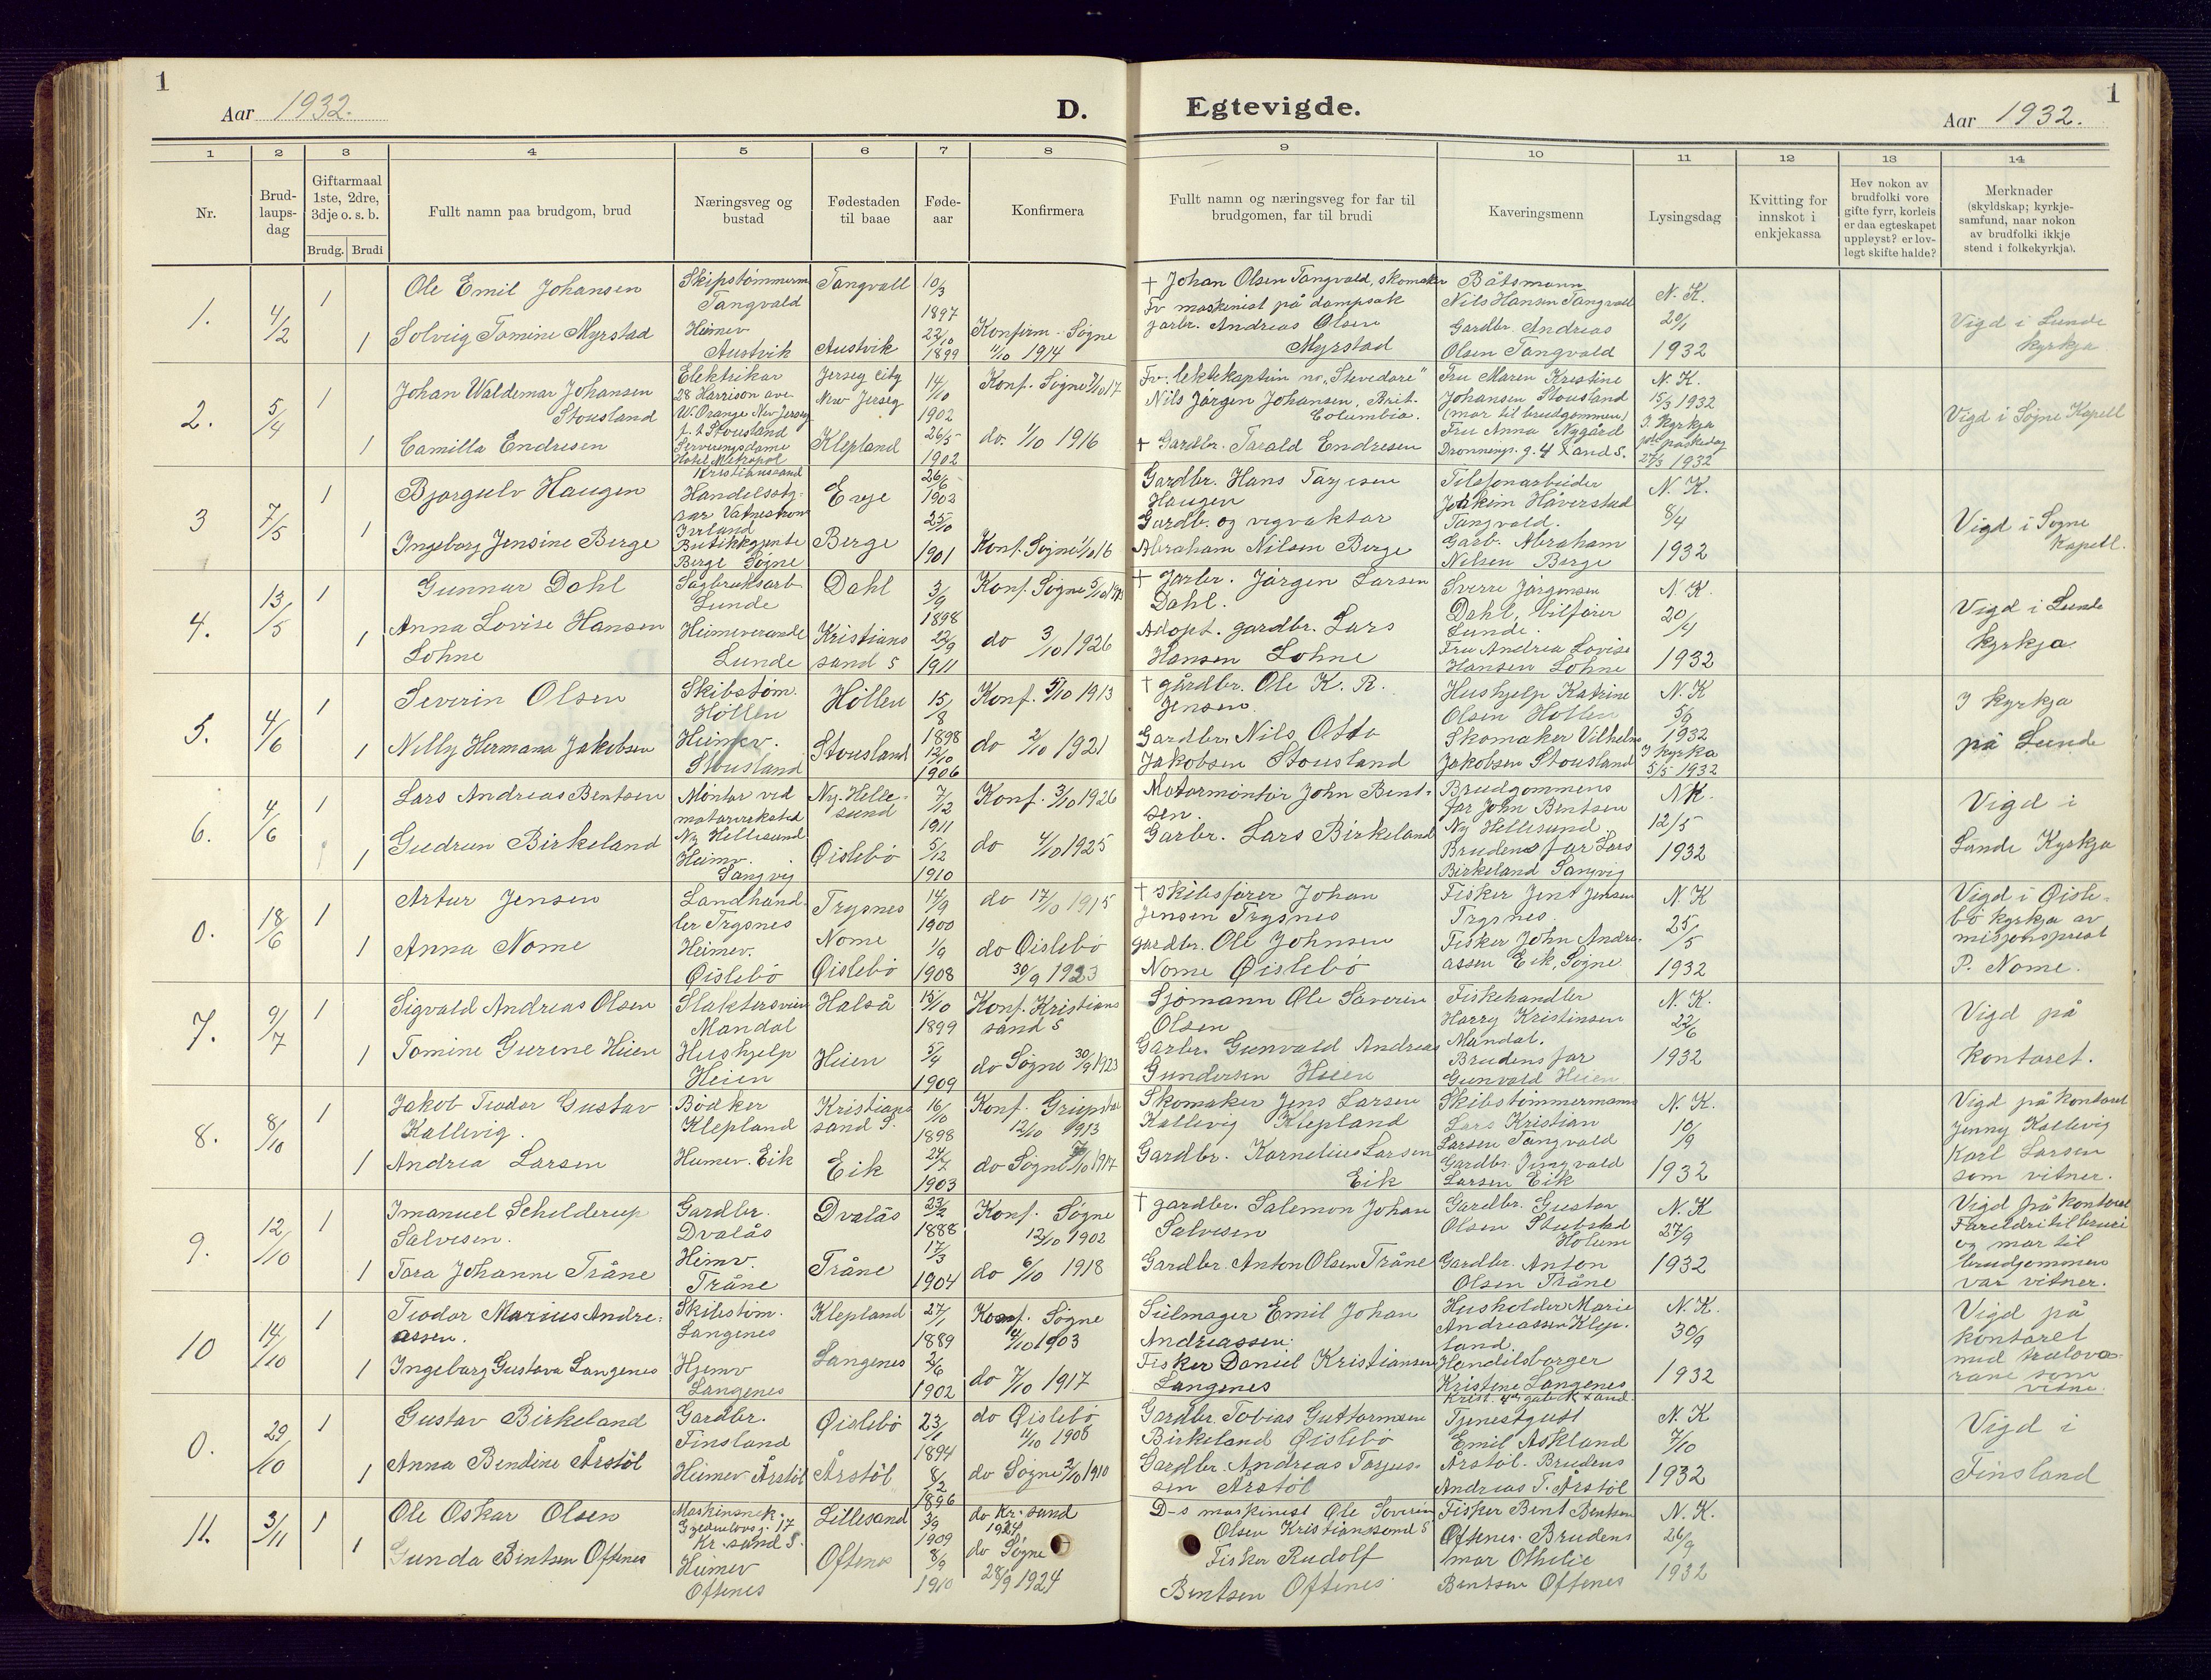 1
Aar 1932.
D.
Egtevigde.
Aar 1932.
1
1 2 3 4 5 6 7 8
9 10 11 12 13 14
Nr.
Brud-
laups-
dag
Giftarmaal
1ste, 2dre,
3dje o. s. b.
Brudg. Brudi
Fullt namn paa brudgom, brud
Næringsveg og
bustad
Fødestaden
til baae
Føde-
aar
Konfirmera
Fullt namn og næringsveg for far til
brudgomen, far til brudi
Kaveringsmenn
Lysingsdag
Kvitting for
innskot i
enkjekassa
Hev nokon av
brudfolki vore
gifte fyrr, korleis
er daa egteskapet
uppløyst? er lov-
legt skifte halde?
Merknader
(skyldskap; kyrkje-
samfund, naar nokon
av brudfolki ikkje
stend i folkekyrkja).
1.
4/2
1
1
Ole Emil Johansen
Solveig Tomine Myrstad
Skipstømmerm
Tangvald
Heimev
Austvik
Tangvall
Austvik
10/3
1897
22/10
1899
Konfirm. Søgne
4/10 1914
+ Johan Olsen Tangvald, skomaker
Fv maskinist på dampsak
garbr. Andreas Olsen
Myrstad
Båtsmann
Nils Hansen Tangvall
Gardbr. Andreas
Olsen Tangvald
N. K.
20/1
1932
Vigd i Lunde
kyrkja
2.
5/4
1
1
Johan Waldemar Johansen
Stousland
Camilla Endresen
Elektrikar
28 Harrison ave
W. Orange New Jersey
f. t Stousland
Serveringsdame
Hotel Metropol
Kristiansand
Jersey City
New Jersey
Klepland
14/10
1902
26/5
1902
Konf. Søgne 7/10 17
do. 1/10 1916
Fv. lektekaptein no. "Stevedore"
Nils Jørgen Johansen, Brit.
Columbia.
+ Gardbr. Tarald Endresen
Fru Maren Kristine
Johansen Stousland
(mor til brudgommen)
Fru Anna Nygård
Dronnings. g. 4 X and S.
N. K.
15/3 1932
I kyrkja
påskedag
27/3 1932
Vigd i Søgne Kapell
3
7/5
1
1
Bjørgulv Haugen
Ingeborg Jensine Berge
Handelssty-
rar Vatnestrøm
Iveland
Butikkgjente
Berge Søgne
Evje
Berge
26/6
1903
25/10
1901
Konf. Søgne 1/10 16
Gardbr. Hans Tarjesen
Haugen
Gardb. og vegvaktar
Abraham Nilsen Berge
Telefonarbeider
Joakim Håverstad
Tangvald.
Garb. Abraham
Nilsen Berge
N. K.
8/4
1932
Vigd i Søgne
Kapell.
4.
13/5
1
1
Gunnar Dahl
Anna Lovise Hansen
Lohne
Sagbruksarb
Lunde
Heimeverande
Lunde
Dahl
Kristians
sand S
3/9
1898
22/9
1911
Konf. Søgne
do 3/10 1926
+ Garbr. Jørgen Larsen
Dahl.
Adopt. gardbr. Lars
Hansen Lohne
Sverre Jørgensen
Dahl, bilfører
Lunde.
Fru Andrea Lovise
Hansen Lohne
N. K.
20/4
1932
Vigd i Lunde
kyrkja
5.
4/6
1
1
Severin Olsen
Nelly Hermana Jakobsen
Skibstøm.
Høllen
Heimev.
Stousland
Høllen
Stousland
15/8
1898
12/10
1906
Konf. 5/10 1913
do 2/10 1921
+ gårdbr. Ole K. R.
Jensen.
Gardbr. Nils Otto
Jakobsen Stousland
Hushjelp Katrine
Olsen Høllen
Skomaker Vilhelm
Jakobsen Stousland
N. K
1932
I kyrka
5/5 1932
I kyrkja
på Lunde
6.
4/6
1
1
Lars Andreas Bentsen
Gudrun Birkeland
Montør ved
motorverksted
Ny Hellesund
Heimv.
Langvig
Ny-Helle-
sund
Øislebø
7/12
1911
5/12
1910
Konf. 3/10 1926
do 4/10 1925
Motormontør John Bent-
sen.
Garbr. Lars Birkeland
Brudgommens
far John Bentsen
Ny Hellesund.
Brudens far Lars
Birkeland Langvig
N K.
12/5
1932
Vigd i
Lunde Kyrkja
0.
18/6
1
1
Artur Jensen
Anna Nome
Landhand-
ler Trysnes
Heimev.
Øislebø
Trysnes
Nome
Øislebø
14/9
1900
1/9
1908
do 17/10 1915
do Øislebø
30/9 1923
+ Skibsfører Johan
Jensen Trysnes
gardbr. Ole Johnsen
Nome Øislebø
Fisker Jent Jensen
Trysnes.
Fisker John Andre-
assen Eik, Søgne
N. K
25/5
1932
Vigd i Øisle-
bø kyrkja av
misjonsprest
P. Nome.
7.
9/7
1
1
Sigvald Andreas Olsen
Tomine Gurene Heien
Slaktersvein
Mandal
Hushjelp
Heien
Halså
Heien
15/10
1899
5/4
1909
Konf. Kristians
sand S
do Søgne 30/9 1923
Sjømann Ole Saverin
Olsen
Garbr. Gunvald Andreas
Gundersen Heien
Fiskehandler
Harry Kristinsen
Mandal.
Brudens far
Gunvald Heien
N. K.
22/6
1932
Vigd på
kontoret.
8.
8/10
1
1
Jakob Teodor Gustav
Kallevig.
Andrea Larsen
Bødker
Klepland
Heimev. Eik
Kristians
sand S.
Eik
16/10
1898
24/7
1903
Konf. Grimstad
12/10 1913
do Søgne 7/10 1917
Skomaker Jens Larsen
Kallevig Klepland
Gardbr. Kornelius Larsen
Eik
Skibstømmermann
Lars Kristian
Larsen Tangvald
Gardbr. Jingvald
Larsen Eik
N. K.
10/9
1932
Vigd på kontoret
Jenny Kallevig
Karl Larsen
som vitner.
9.
12/10
1
1
Imanuel Schelderup
Salvesen.
Tora Johanne Tråne
Gardbr.
Dvalås
Heimv.
Tråne
Dvalås
Tråne
23/2
1888
17/3
1904
Konf. Søgne
12/10 1902
do 6/10 1918
+ gardbr. Salemon Johan
Salvesen
Gardbr. Anton Olsen Tråne
Gardbr. Gustav
Olsen Stubstad
Holum
Gardbr. Anton
Olsen Tråne
N. K
27/9
1932
Vigd på kontoret
Foreldri til brudi
og mor til
brudgommen
var vitner.
10
14/10
1
1
Teodor Marius Andre-
assen.
Ingeborg Gustava Langenes
Skibstøm.
Langenes
Hjemv
Langenes
Klepland
Langenes
27/1
1889
2/6
1902
Konf. Søgne
4/10 1903
do 7/10 1917
Seilmager Emil Johan
Andreassen.
Fisker Daniel Kristiansen
Langenes
Husholder Marie
Andreassen Klep-
land.
Handelsborger
Kristene Langenes
N. K.
30/9
1932
Vigd på
kontoret
med trulova-
rane som
vitne.
0.
29/10
1
1
Gustav Birkeland
Anna Bendine Årstøl
Gardbr.
Finsland
Heimev Årstøl
Øislebø
Årstøl
23/1
1894
8/2
1896
do Øislebø
11/10 1908
do Søgne 2/10 1910
Gardbr. Tobias Guttormsen
Birkeland Øislebø
Gardbr. Andreas Tarjus-
sen Årstøl
Tjenestgutt
Emil Askland
Årstøl. Brudens
Andreas T. Årstøl
N. K
7/10
1932
Vigd i
Finsland
11.
3/11
1
1
Ole Oskar Olsen
Gunda Bentsen Oftenes
Maskinsnek.
Kr. sand S.
Heimev
Oftenes
Lillesand
Oftenes
3/9
1909
8/9
1910
do Kr. sand
1924
do Søgne
28/9 1924
D-s maskinist Ole Severin
Olsen Kristianssand S
Fisker Rudolf
Bentsen Oftenes
Fisker Bent Bentsen
Oftenes. Brudens
mor Othelie
Bentsen Oftenes
N. K.
26/9
1932